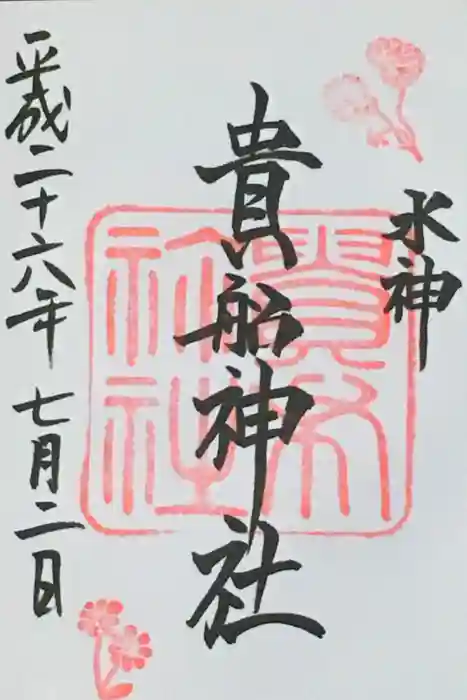 水神
貴船神社
平成二十六年 七月二日